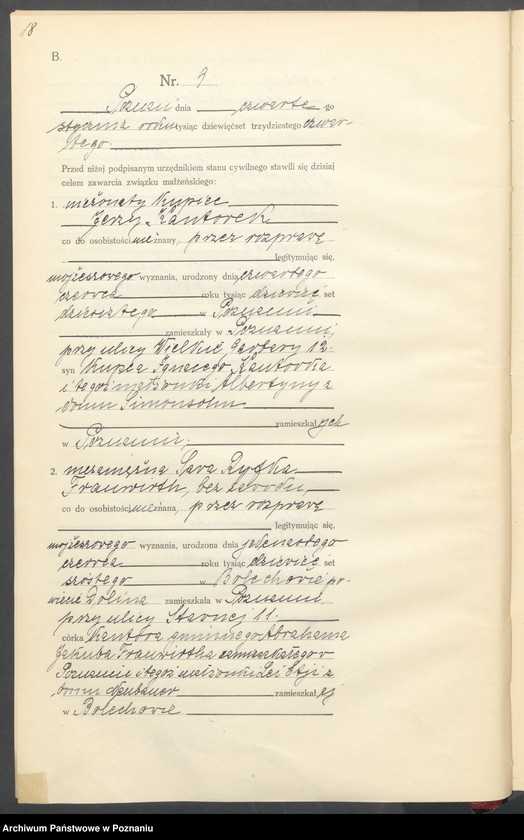 18
B.
Nr. 9
Poznań dnia czwarte-go
stycznia roku tysiąc dziewięćset trzydziestego czwar-
tego
Przed niżej podpisanym urzędnikiem stanu cywilnego stawili się dzisiaj
celem zawarcia związku małżeńskiego:
1. nieżonaty kupiec
Jerzy Kantorek
co do osobistości nieznany, przez rozprawę
legitymując się,
mojżeszowego wyznania, urodzony dnia czwartego
czerwca roku tysiąc dziewięć set
dziesiątego w Poznaniu
zamieszkały w Poznaniu,
przy ulicy Wielkie Garbary 12.
syn kupca Ignacego Kantorka
i tegoż małżonki Albertyny z
domu Simonsohn
zamieszkałych
w Poznaniu;
2. niezamężna Sara Ryfka
Frauwirth, bez zawodu,
co do osobistości nieznana, przez rozprawę
legitymując się,
mojżeszowego wyznania, urodzona dnia jedenastego
czerwca roku tysiąc dziewięć set
szóstego w Bolechowie po-
wiecie Dolina zamieszkała w Poznaniu
przy ulicy Stawnej 11.
córka kantora gminnego Abrahama
Jakuba Frauwirtha zamieszkałego w
Poznaniu i tegoż małżonki Lei Etji z
domu Neubauer zamieszkałej
w Bolechowie
Archiwum Państwowe w Poznaniu